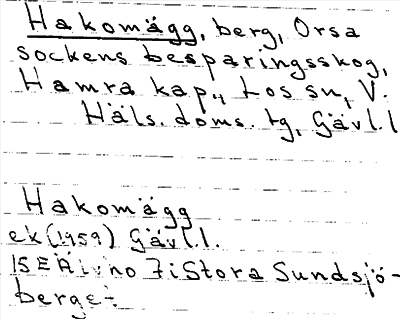 Hakomägg, berg, Orsa
sockens besparingsskog,
Hamra kap., Los sn, V.
Häls. doms. tg, Gävl.l
Hakomägg
ek (1959) Gävl.l.
15E Älvho 7i Stora Sundsjö-
berget